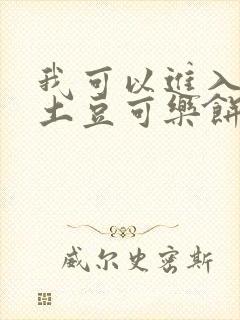 我可以進入
土豆可樂餅
威尔史密斯